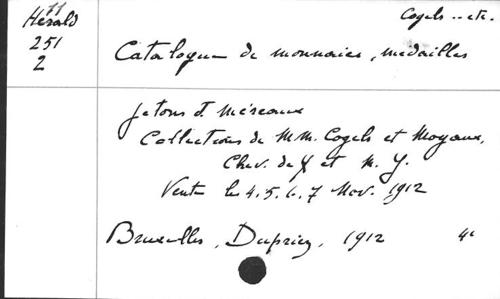 Herald 77
251
2
Cogels .. etc.
Catalogue de monnaies, médailles
jetons et méreaux
Collections de MM. Cogels et Moyaux,
Chev. de X et M. Y.
Vente le 4. 5. 6. 7 Nov. 1912
Bruxelles, Dupriez, 1912 4°